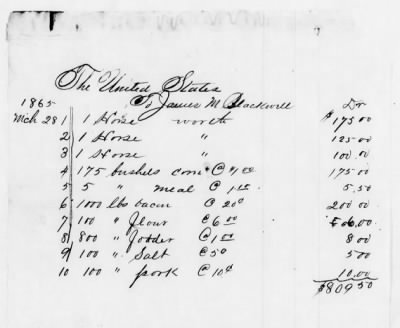 The United States
1865 To James M Blackwell Dr
Mch 28 1 1 Horse worth $175.00
2 1 Horse " 125.00
3 1 Horse " 100.00
4 175 bushels corn @ 1.00 175.00
5 5 " meal @ 1.10 5.50
6 1000 lbs bacon @ 20¢ 200.00
7 100 " Flour @ 6.00 6.00
8 800 " Fodder @ 1.00 8.00
9 100 " Salt @ 5¢ 5.00
10 100 " pork @ 10¢ 10.00
$809.50